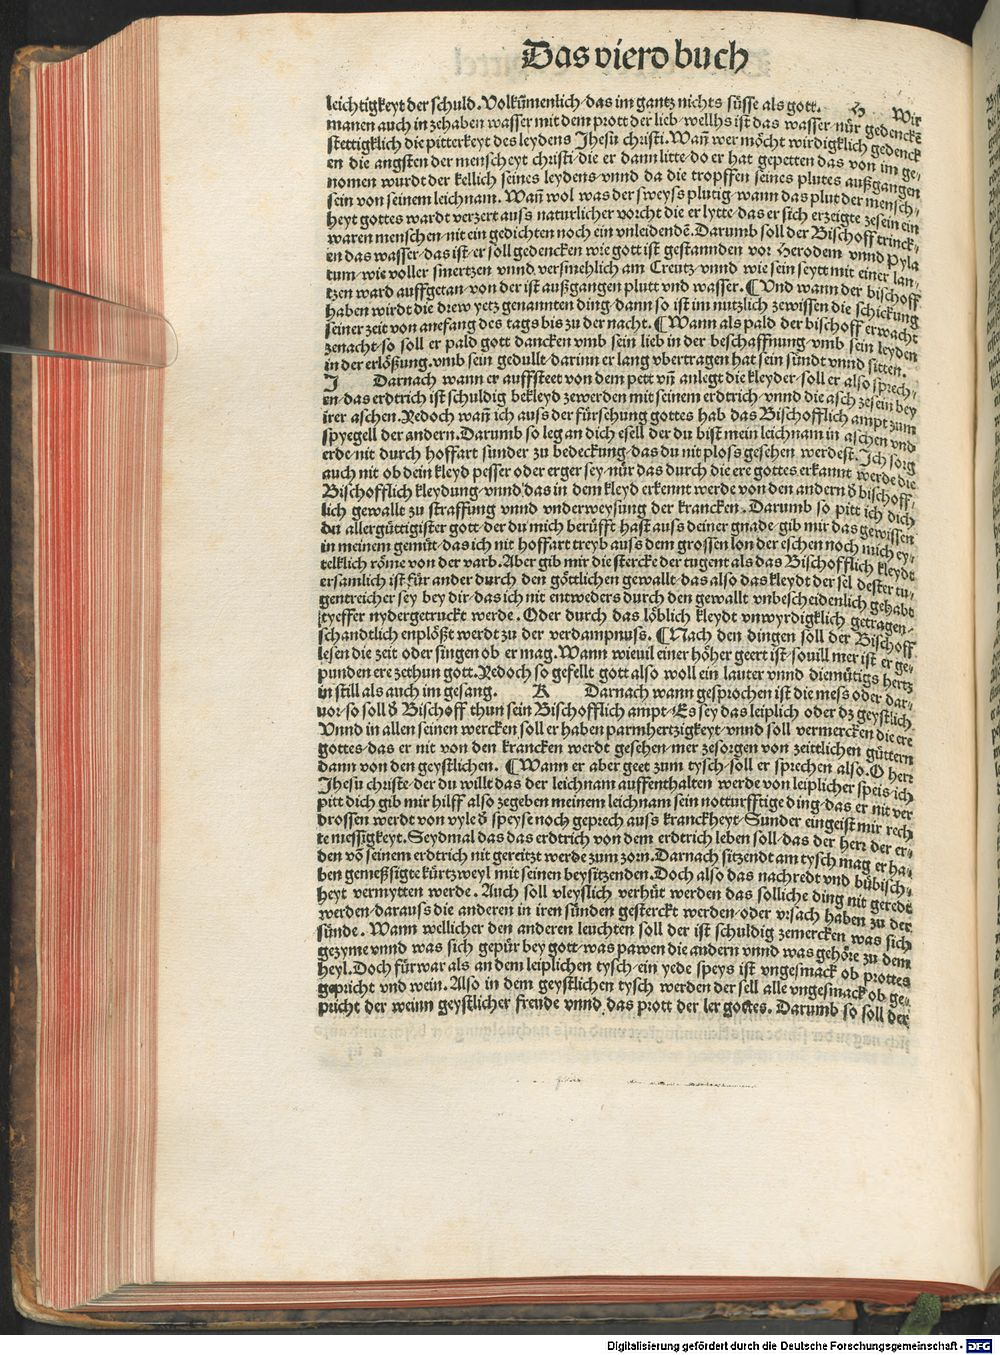 Das vierd buch
leichtigkeyt der schuld. Volkūmenlich/das im gantz nichts süsse als gott. H Wir
manen auch in zehaben wasser mit dem prott der lieb/wellhs ist das wasser/nür gedenckē
stettigklich die pitterkeyt des leydens Jhesu christi. Wañ wer möcht wirdigklich gedenck
en die angsten der menscheyt christi/die er dann litte/do er hat gepetten das von im ge/
nomen wurdt der kellich seines leydens/vnnd da die tropffen seines plutes außgangen
sein von seinem leichnam. Wañ wol was der sweyss plutig/wann das plut der mensch/
heyt gottes wardt verzert auss natürlicher vorcht die er lytte/das er sich erzeigte ze sein ein
waren menschen/nit ein gedichten noch ein vnleidendē. Darumb soll der Bischoff trinck/
en das wasser/das ist/er soll gedencken wie gott ist gestannden vor Herodem vnnd Pyla
tum/wie voller smertzen vnnd versmehlich am Creutz/vnnd wie sein seytt mit einer lan/
tzen ward auffgetan/von der ist außgangen plutt vnd wasser. ¶ Vnd wann der bischoff
haben wirdt die drew yetz genannten ding/dann so ist im nutzlich zewissen die schickung
seiner zeit von anefang des tags bis zu der nacht. ¶ Wann als pald der bischoff erwacht
zenacht/so soll er pald gott dancken vmb sein lieb in der beschaffnung/vmb sein leyden
in der erlößung/vmb sein gedullt/darinn er lang vbertragen hat sein sündt vnnd sitten.
J Darnach wann er auffsteet von dem pett vñ anlegt die kleyder/soll er also sprech/
en/das erdtrich ist schuldig bekleyd zewerden mit seinem erdtrich/vnnd die asch ze sein bey
irer aschen. Yedoch wañ ich auss der fürsehung gottes hab das Bischofflich ampt zum
spyegell der andern. Darumb so leg an dich esell der du bist mein leichnam in aschen vnd
erde/nit durch hoffart/sunder zu bedeckung/das du nit ploss gesehen werdest. Ich sorg
auch nit ob dein kleyd pesser oder erger sey/nür das durch die ere gottes erkannt werde die
Bischofflich kleydung/vnnd das in dem kleyd erkennt werde von den andern d̕ bischoff/
lich gewallt zu straffung vnnd vnderweysung der krancken. Darumb so pitt ich dich
du allergüttigister gott/der du mich berüfft hast auss deiner gnade/gib mir das gewissen
in meinem gemüt/das ich nit hoffart treyb auss dem grossen lon der eschen/noch mich ey/
telklich röme von der varb. Aber gib mir die stercke der tugent/als das Bischofflich kleydt
ersamlich ist für ander durch den göttlichen gewallt/das also das kleydt der sel dester tu/
gentreicher sey bey dir/das ich nit entweders durch den gewallt vnbescheidenlich gehabt
tyeffer nydergetruckt werde. Oder durch das löblich kleydt vnwyrdigklich getragen/
schandtlich enplößt werdt zu der verdampnuss. ¶ Nach den dingen soll der Bischoff
lesen die zeit oder singen ob er mag. Wann wieuil einer höher geert ist/souill mer ist er ge/
punden ere zethun gott. Yedoch so gefellt gott also woll ein lauter vnnd diemütigs hertz
in still als auch im gesang. K Darnach wann gesprochen ist die mess oder dar/
vor/so soll d̕ Bischoff thun sein Bischofflich ampt/Es sey das leiplich oder dz geystlich
Vnnd in allen seinen wercken soll er haben parmhertzigkeyt/vnnd soll vermercken die ere
gottes/das er nit von den krancken werdt gesehen/mer zesorgen von zeittlichen güttern
dann von den geystlichen. ¶ Wann er aber geet zum tysch/soll er sprechen also. O herr
Jhesu christe/der du willt das der leichnam auffenthalten werde von leiplicher speis/ich
pitt dich gib mir hilff also zegeben meinem leichnam sein notturfftige ding/das er nit ver
drossen werdt von vyle d̕ speyse noch geprech auss kranckheyt/Sunder eingeist mir rech
te messigkeyt. Seydmal das das erdtrich von dem erdtrich leben soll/das der herr der er/
den võ seinem erdtrich nit gereitzt werde zum zorn. Darnach sitzendt am tysch mag er ha/
ben gemeßsigte kürtzweyl mit seinen beysitzenden. Doch also das nachredt vnd bübisch/
heyt vermytten werde. Auch soll vleyslich verhüt werden das solliche ding nit geredt
werden/darauss die anderen in iren sünden gesterckt werden/oder vrsach haben zu der
sünde. Wann wellicher den anderen leuchten soll der ist schuldig zemercken was sich
gezyme vnnd was sich gepür bey gott/was pawen die andern vnnd was gehöre zu dem
heyl. Doch fürwar als an dem leiplichen tysch/ein yede speys ist vngesmack ob prottes
gepricht vnd wein. Also in dem geystlichen tysch werden der sell alle vngesmack ob ge/
pricht der weinn geystlicher freude vnnd das prott der ler gottes. Darumb so soll der
Digitalisierung gefördert durch die Deutsche Forschungsgemeinschaft - DFG